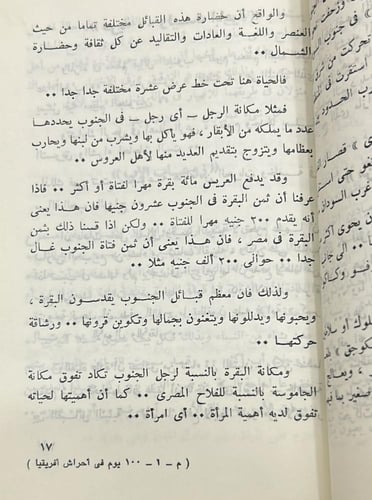 والواقع أن حضارة هذه القبائل مختلفة تماما من حيث
العنصر واللغة والعادات والتقاليد عن كل ثقافة وحضارة
الشمال ..
فالحياة هنا تحت خط عرض عشرة مختلفة جدا جدا ..
فمثلا مكانة الرجل ـ أى رجل ـ فى الجنوب يحددها
عدد ما يملكه من الأبقار ، فهو يأكل بها ويشرب من لبنها ويحارب
بعظامها ويتزوج بتقديم العديد منها لأهل العروس ..
وقد يدفع العريس مائة بقرة مهرا لفتاة أو أكثر .. فاذا
عرفنا أن ثمن البقرة فى الجنوب عشرون جنيها فان هذا يعنى
أنه يقدم ٢٠٠٠ جنيه مهرا للفتاة .. ولكن اذا قسنا ذلك بثمن
البقرة فى مصر ، فان هذا يعنى أن ثمن فتاة الجنوب غال
جدا .. حوالى ٢٠٠ ألف جنيه مثلا ..
ولذلك فان معظم قبائل الجنوب يقدسون البقرة ،
ويحبونها ويدللونها ويتغنون بجمالها وتكوين قرونها .. ورشاقة
حركتها ..
ومكانة البقرة بالنسبة لرجل الجنوب تكاد تفوق مكانة
الجاموسة بالنسبة للفلاح المصرى .. كما أن أهميتها لحياته
تفوق لديه أهمية المرأة .. أى امرأة ..
١٧
( م ـ ١ ـ ١٠٠ يوم فى أحراش أفريقيا )